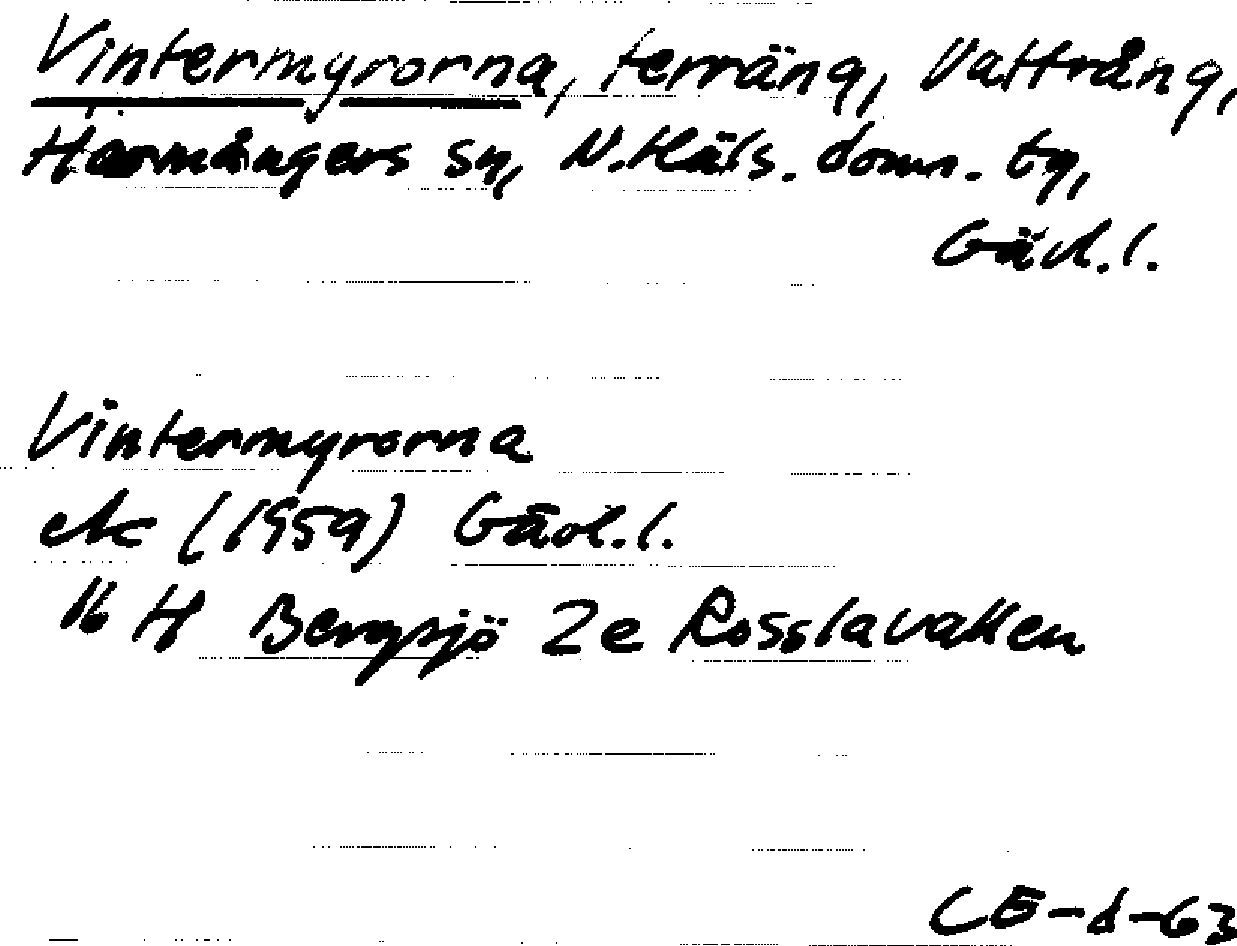 Vintermyrorna, terräng, Vattrång,
Harmångers sn, N. Häls. doms. tg,
Gävl. l.
Vintermyrorna
ek (1959) Gävl. l.
16 H Bergsjö 2e Rosslavallen
CE-d-63